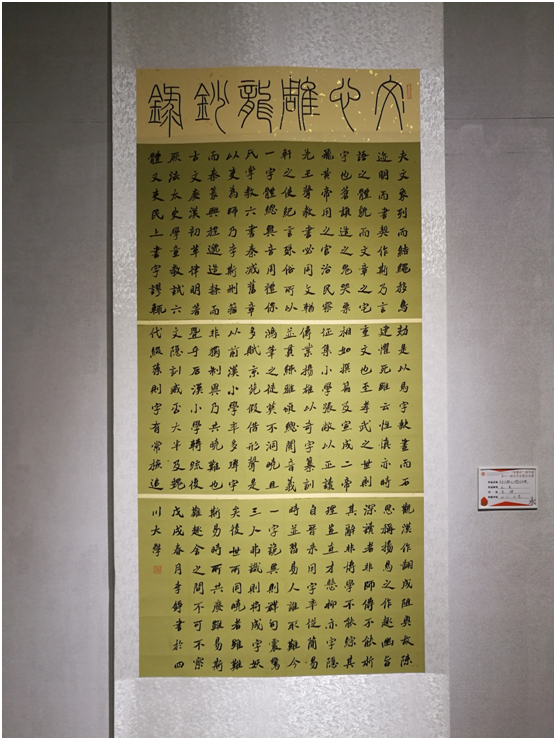 文心雕龍鈔錄
夫文象列而結繩移鳥
迹明而書契作斯乃言
語之體貌而文章之宅
宇也蒼頡造之鬼哭粟
飛黃帝用之官治民察
先王聲教書必同文輶
軒之使紀言殊俗所以
一字體總異音周禮保
氏掌教六書秦滅舊章
以吏為師乃李斯刪籀
而秦篆興程邈造隸而
古文廢漢初草律明著
厥法太史學童教試六
體又吏民上書字謬輒
劾是以馬字缺畫而石
建懼死雖云性慎亦時
重文也至孝武之世則
相如撰篇及宣成二帝
征集小學張敞以正讀
傳業揚雄以奇字纂訓
並貫練雅頌總閱音義
鴻筆之徒莫不洞曉且
多賦京苑假借形聲是
以前漢小學率多瑋字
非獨制異乃共曉難也
暨乎后漢小學轉疏復
文隱訓臧否大半及魏
代綴藻則字有常檢追
觀漢作翻成阻奧故陳
思稱揚馬之作趣幽旨
深讀者非師傳不能析
其辭非博學不能綜其
理豈直才懸抑亦字隱
自晉來用字率從簡易
時並習易人誰取難今
一字詭異則群句震驚
三人弗識則將成字妖
矣後世所同曉者雖難
斯易時所共廢雖易斯
難趣舍之間不可不察
戊戌春月李書於四
川大學